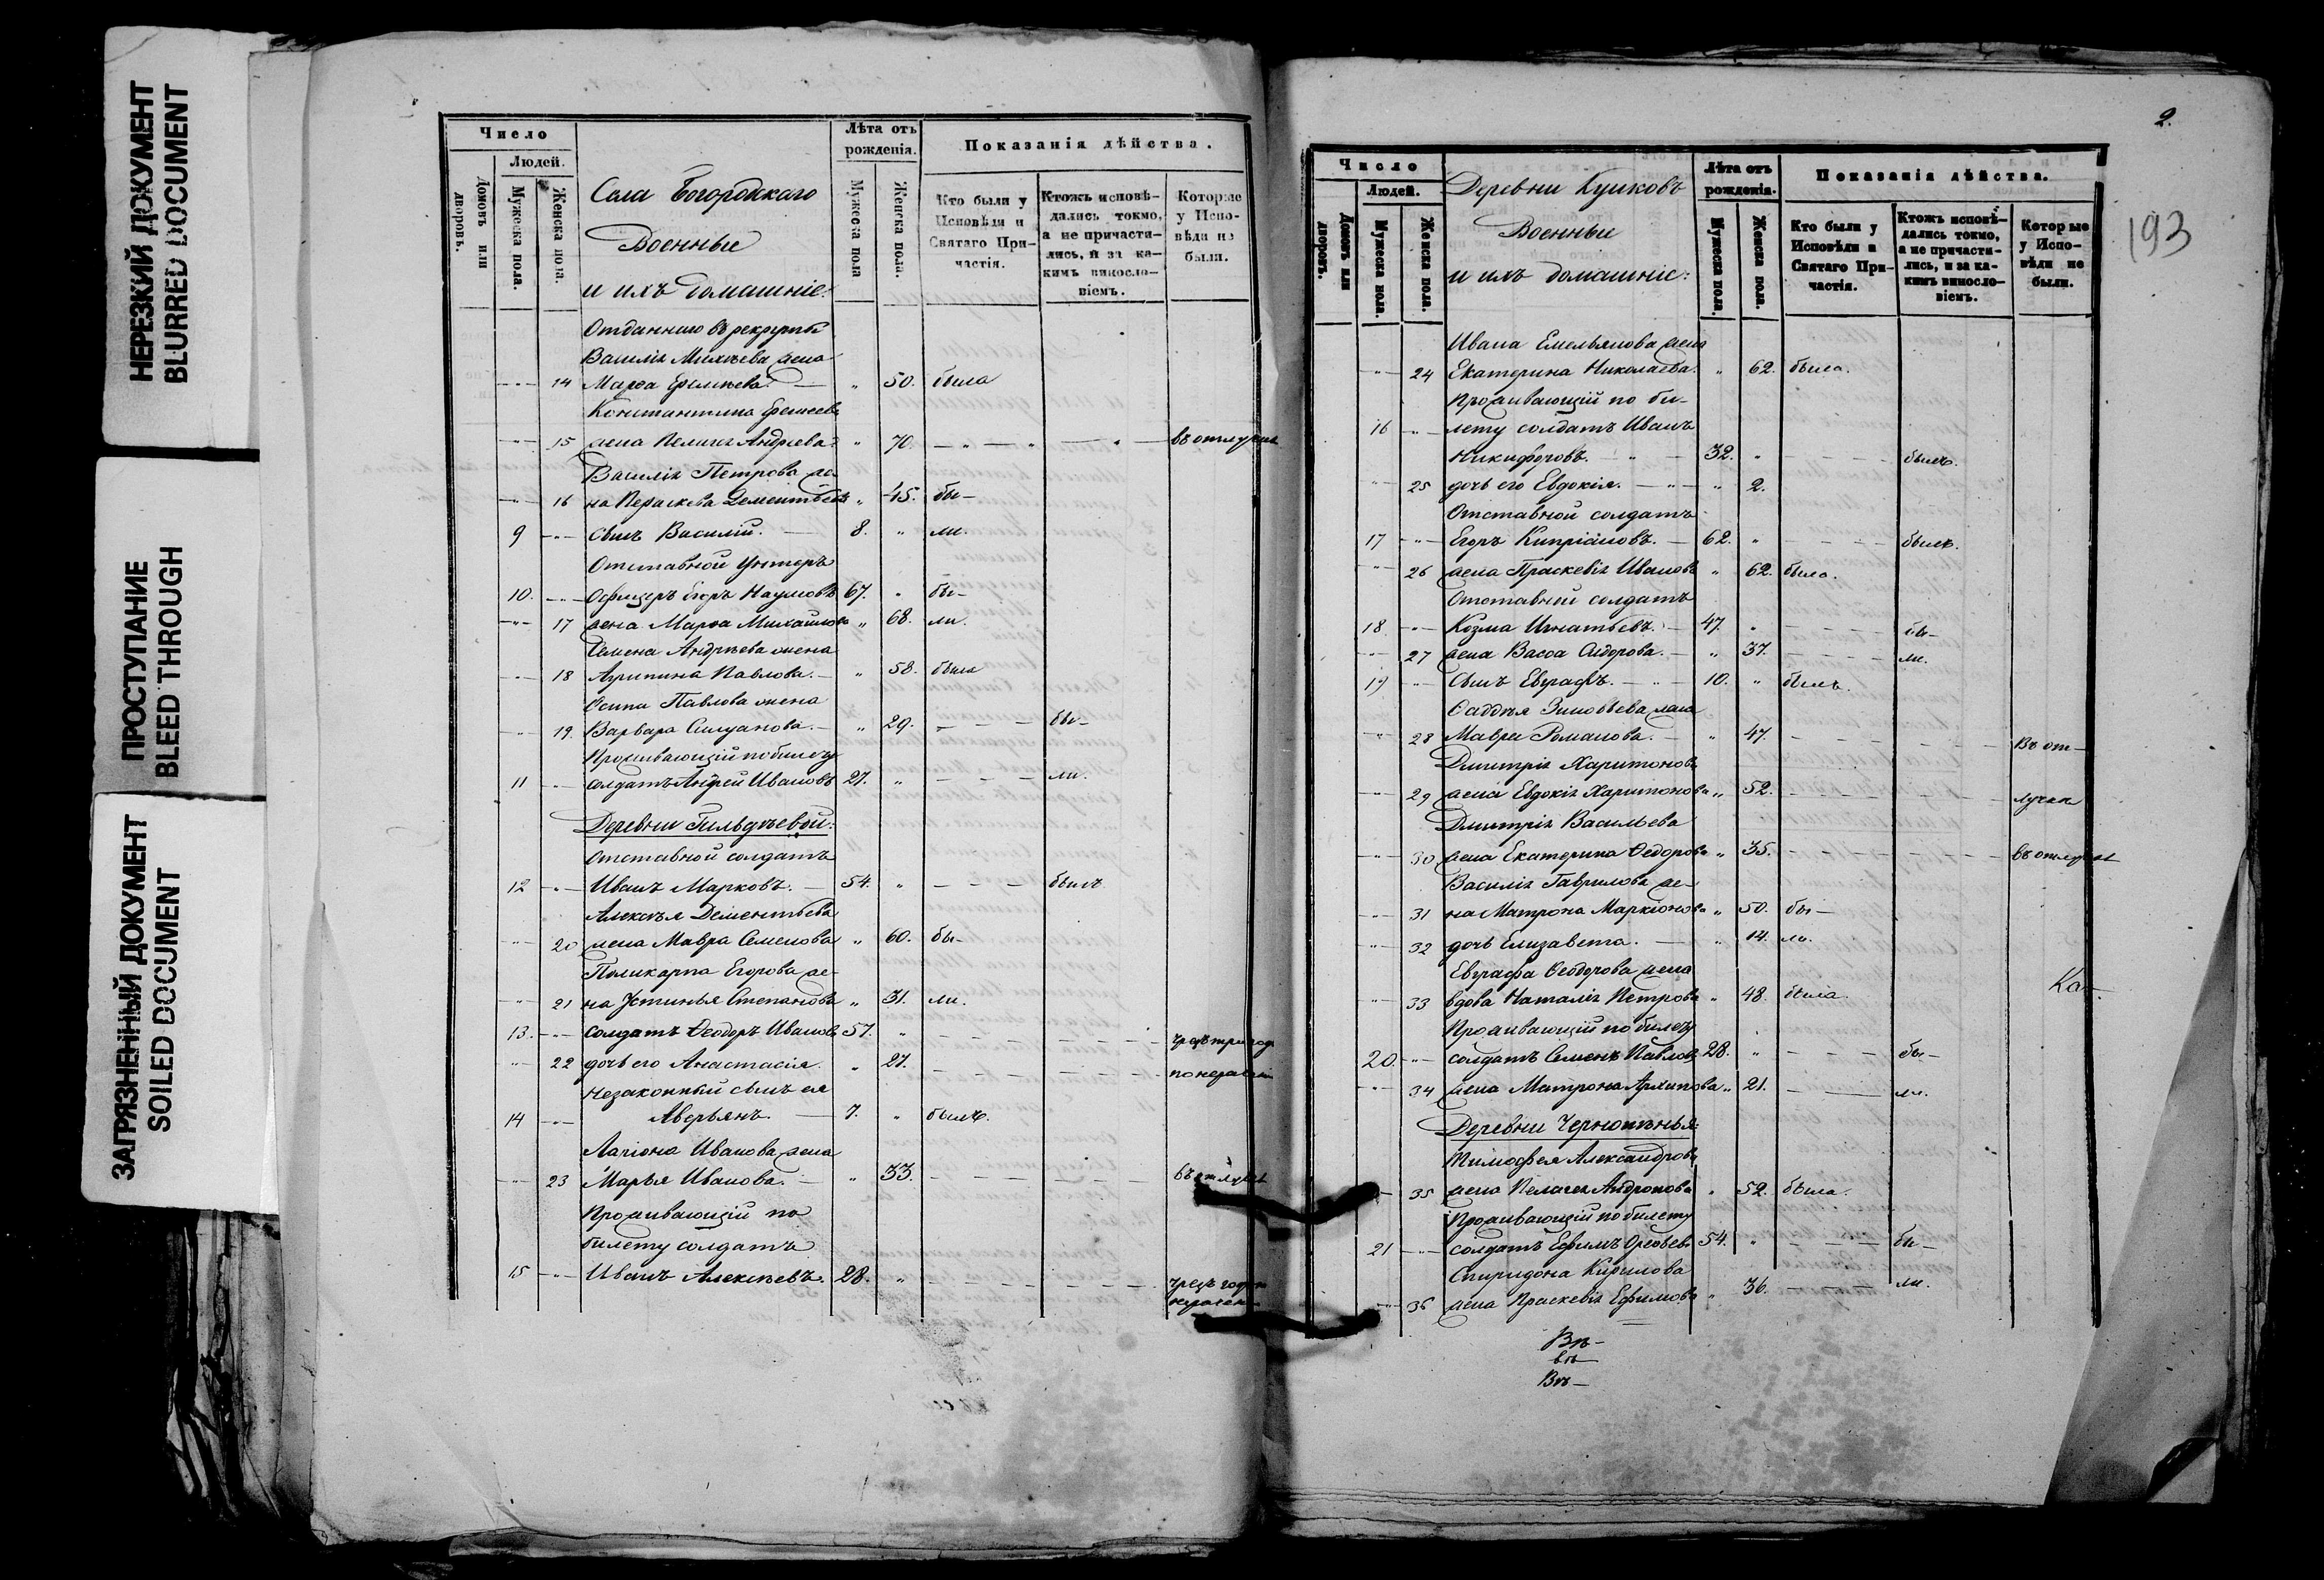 НЕРЕЗКИЙ ДОКУМЕНТ
BLURRED DOCUMENT
ПРОСТУПАНИЕ
BLEED THROUGH
ЗАГРЯЗНЕННЫЙ ДОКУМЕНТ
SOILED DOCUMENT
Число
Людей.
Домовъ или дворовъ.
Мужеска пола.
Женска пола.
Села Богородскаго
Военные
и ихъ домашніе:
Лѣта отъ рожденія.
Мужеска пола
Женска пола.
Показанія дѣйства.
Кто были у Исповѣди и Святаго При-
частія.
Ктожъ исповѣ-
дались токмо,
а не причасти-
лись, и за ка-
кимъ виносло-
віемъ.
Которые
у Испо-
вѣди не
были.
Отданнаго въ рекруты
Василія Михѣева жена
14 Марѳа Ефимьева. — " 50. была
Константина
15 жена Пелагея Андреева " 70. — " — " — " — въ отлучкѣ
Василія Петрова же-
16 на Параскева Дементьева " 45. бы-
9 — " — сынъ Василій. — 8. " ли.
Отставной унтеръ
10. — " — Офицеръ Егоръ Наумовъ 67. " бы-
— " — 17 жена Марѳа Михайлова " 68. ли.
Семена Андрѣева жена
— " — 18 Агрипина Павлова. — " 58. была
Осипа Павлова жена
" 19. Варвара Силуанова. — " 29. — — — бы-
Проживающій по билету
11 " солдатъ Андрей Ивановъ 27. " — — — ли.
Деревни Гильдѣевой:
Отставной солдатъ
12 — " — Иванъ Марковъ. — 54. " — — — былъ
Алексѣя Дементьева
— " — 20 жена Мавра Семенова " 60. бы-
Поликарпа Егорова же-
" 21 на Устинья Степанова " 31. ли.
13. — " — солдатъ Ѳеодоръ Иванов 57. " — — — — — —
" 22 дочь его Анастасія. " 27. — — — — — —
Незаконный сынъ ея
14 — " — Аверьянъ. — 7. " былъ.
Ларіона Иванова жена
— " — 23 Марья Иванова. — " 33. — — — — — — въ отлучкѣ
Проживающій по
билету солдатъ
15 — " — Иванъ Алексѣевъ. 28. " — — — — — —
2.
193
Число
Людей.
Домовъ или дворовъ.
Мужеска пола.
Женска пола.
Деревни Кушковъ
Военные
и ихъ домашніе:
Лѣта отъ рожденія.
Мужеска пола.
Женска пола.
Показанія дѣйства.
Кто были у
Исповѣди и
Святаго При-
частія.
Ктожъ исповѣ-
дались токмо,
а не причасти-
лись, и за ка-
кимъ винослo-
віемъ.
Которые
у Испо-
вѣди не
были.
Ивана Емельянова жена
" 24 Екатерина Николаева. " 62. была.
Проживающій по би-
16 — " — лету солдатъ Иванъ
Никифоровъ. — " — 32. " — — — былъ.
" 25 дочь его Евдокія. — " — " 2.
Отставной солдатъ
17 — " — Егоръ Кипріановъ. — 62. " — — — былъ.
" 26 жена Праскевія Иванова " 62. была.
Отставный солдатъ
18 — " — Козма Игнатьевъ. — 47. " — — — бы-
— " — 27 жена Васса Сидорова. — " 37. — — — ли.
19 " сынъ Евграфъ. — " — 10. " былъ.
Ѳаддѣя Зиновьева жена
" 28 Мавра Романова. — " 47. — — — — — — Въ от-
Дмитрія Харитонова
" 29 жена Евдокія Харитонова " 52. — — — — — — лучкѣ
Дмитрія Васильева
— " — 30 жена Екатерина Ѳедорова " 35. — — — — — — въ отлучкѣ
Василія Гаврилова же-
— " — 31 на Матрона Маркіонова " 50. бы-
— " — 32 дочь Елизавета. — " 14. ли.
Евграфа Ѳеодорова жена
— " — 33 вдова Наталія Петрова " 48. была.
Ка-
Проживающій по билету
20. — " — солдатъ Семенъ Павлов. 28. " — — — бы-
— " — 34 жена Матрона Архипова " 21. — — ли.
Деревни Чернопенья:
Тимоѳея Александрова
35 жена Пелагея Андронова " 52. была.
Проживающій по билету
21 — " — солдатъ Ефимъ 54. " — — — бы-
Спиридона Кирилова
— " — 36 жена Праскевія Ефимова " 36. — — — ли.
Въ-
въ
Въ-